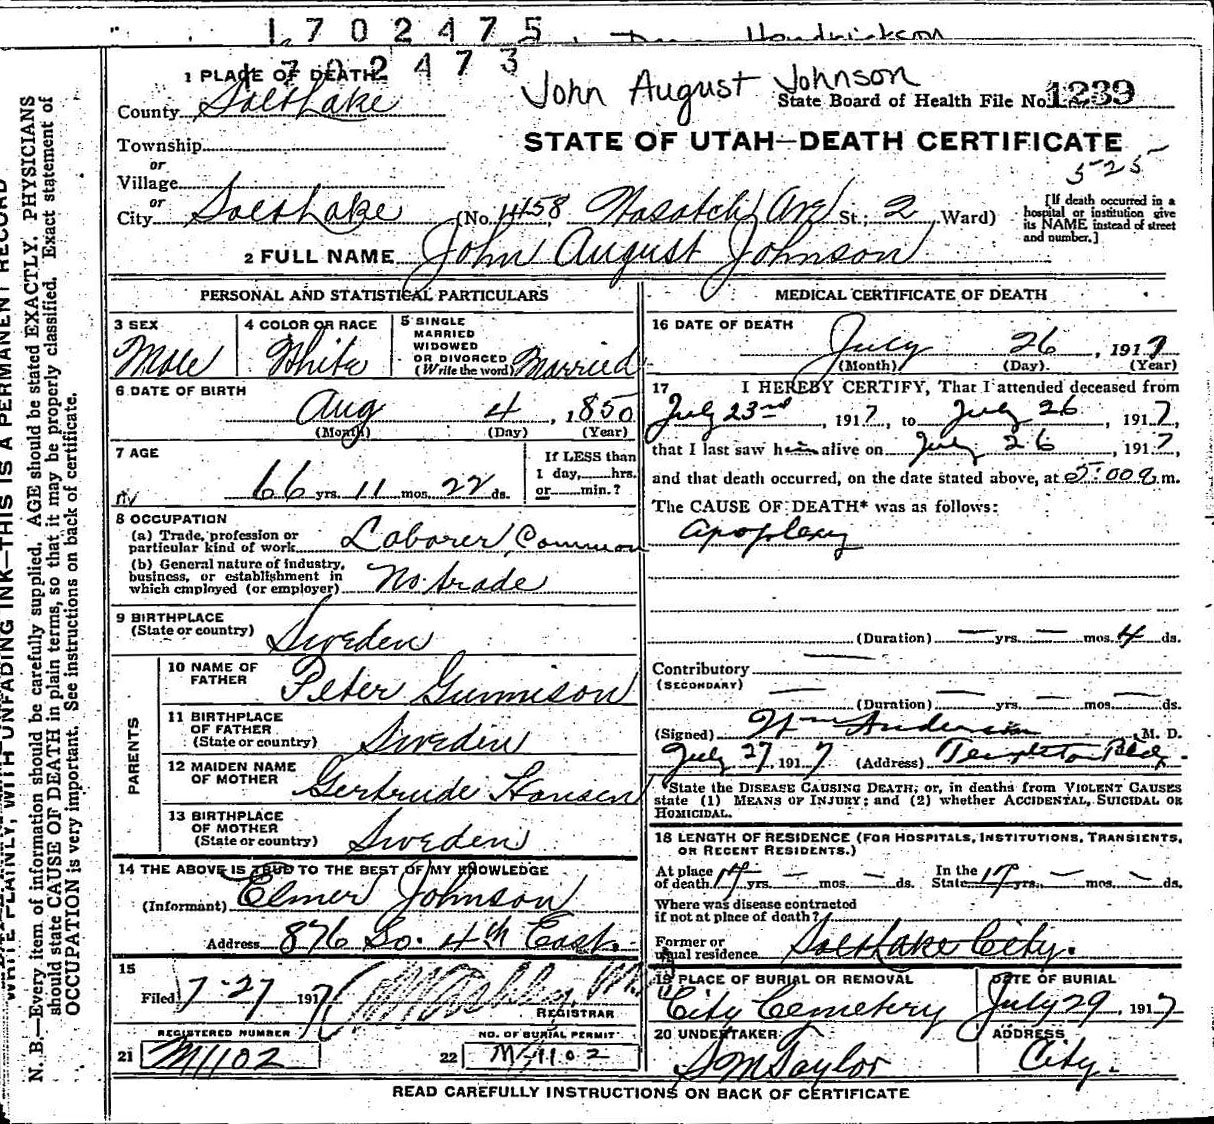 1702475 Hendrickson
1702473
1 PLACE OF DEATH
John August Johnson
County Salt Lake
State Board of Health File No. 1239
Township
STATE OF UTAH—DEATH CERTIFICATE
or
525
Village
or
City Salt Lake (No. 1458 Wasatch Ave St.; 2 Ward)
[If death occurred in a
hospital or institution give
its NAME instead of street
and number.]
2 FULL NAME John August Johnson
PERSONAL AND STATISTICAL PARTICULARS
3 SEX
Male
4 COLOR OR RACE
White
5 SINGLE
MARRIED
WIDOWED
OR DIVORCED
(Write the word) Married
6 DATE OF BIRTH
Aug 4, 1850
(Month) (Day) (Year)
7 AGE
66 yrs. 11 mos. 22 ds.
If LESS than
1 day,.....hrs.
or.....min.?
8 OCCUPATION
(a) Trade, profession or
particular kind of work Laborer, Common
(b) General nature of industry,
business, or establishment in
which employed (or employer) No trade
9 BIRTHPLACE
(State or country) Sweden
PARENTS
10 NAME OF
FATHER Peter Gunnison
11 BIRTHPLACE
OF FATHER
(State or country) Sweden
12 MAIDEN NAME
OF MOTHER Gertrude Hansen
13 BIRTHPLACE
OF MOTHER
(State or country) Sweden
14 THE ABOVE IS TRUE TO THE BEST OF MY KNOWLEDGE
(Informant) Elmer Johnson
Address 876 So. 4th East.
15
Filed 7-27 1917
REGISTRAR
REGISTERED NUMBER
21 M1102
NO. OF BURIAL PERMIT
22 M-1102
MEDICAL CERTIFICATE OF DEATH
16 DATE OF DEATH
July 26, 1917
(Month) (Day) (Year)
17 I HEREBY CERTIFY, That I attended deceased from
July 23rd, 1917, to July 26, 1917,
that I last saw him alive on July 26, 1917,
and that death occurred, on the date stated above, at 5:00 a.m.
The CAUSE OF DEATH* was as follows:
Apoplexy
(Duration) — yrs. — mos. 4 ds.
Contributory —
(SECONDARY)
(Duration) — yrs. — mos. — ds.
(Signed) Wm Anderson, M. D.
July 27, 1917 (Address) Templeton Bldg.
*State the DISEASE CAUSING DEATH; or, in deaths from VIOLENT CAUSES
state (1) MEANS OF INJURY; and (2) whether ACCIDENTAL, SUICIDAL OR
HOMICIDAL.
18 LENGTH OF RESIDENCE (FOR HOSPITALS, INSTITUTIONS, TRANSIENTS,
OR RECENT RESIDENTS.)
At place
of death 17 yrs. — mos. — ds.
In the
State 17 yrs. — mos. — ds.
Where was disease contracted
if not at place of death?
Former or
usual residence Salt Lake City.
19 PLACE OF BURIAL OR REMOVAL
City Cemetery
DATE OF BURIAL
July 29, 1917
20 UNDERTAKER
S M Taylor
ADDRESS
City.
READ CAREFULLY INSTRUCTIONS ON BACK OF CERTIFICATE
WRITE PLAINLY, WITH UNFADING INK—THIS IS A PERMANENT RECORD
N. B.—Every item of information should be carefully supplied. AGE should be stated EXACTLY. PHYSICIANS
should state CAUSE OF DEATH in plain terms, so that it may be properly classified. Exact statement of
OCCUPATION is very important. See instructions on back of certificate.